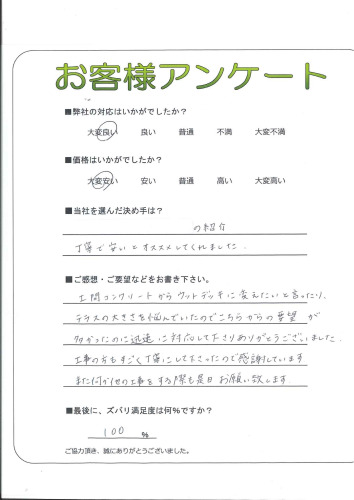 お客様アンケート
■弊社の対応はいかがでしたか？
大変良い 良い 普通 不満 大変不満
■価格はいかがでしたか？
大変安い 安い 普通 高い 大変高い
■当社を選んだ決め手は？
の紹介
丁寧で安いとオススメしてくれました。
■ご感想・ご要望などをお書き下さい。
土間コンクリートからウッドデッキに変えたいと言ったり、
テラスの大きさを悩んでいたのでこちらからの要望が
多かったのに迅速に対応して下さりありがとうございました。
工事の方もすごく丁寧にして下さったので感謝しています
また何か他の工事をする際も是非お願い致します
■最後に、ズバリ満足度は何％ですか？
100 ％
ご協力頂き、誠にありがとうございました。